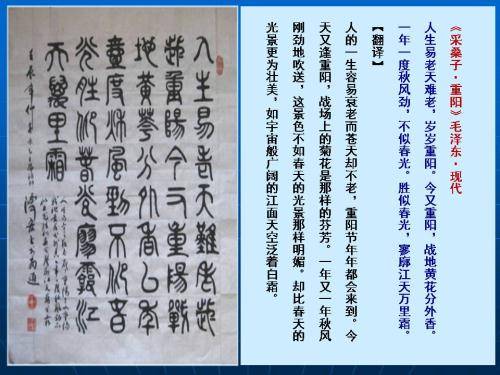 《采桑子·重阳》毛泽东·现代
人生易老天难老，岁岁重阳。今又重阳，战地黄花分外香。
一年一度秋风劲，不似春光。胜似春光，寥廓江天万里霜。
【翻译】
人的一生容易衰老而苍天却不老，重阳节年年都会来到。今
天又逢重阳，战场上的菊花是那样的芬芳。一年又一年秋风
刚劲地吹送，这景色不如春天的光景那样明媚。却比春天的
光景更为壮美，如宇宙般广阔的江面天空泛着白霜。
人生易老天難老歲
歲重陽今又重陽戰
地黃華分外香一年
一度秋風勁不似春
光勝似春光寥廓江
天萬里霜